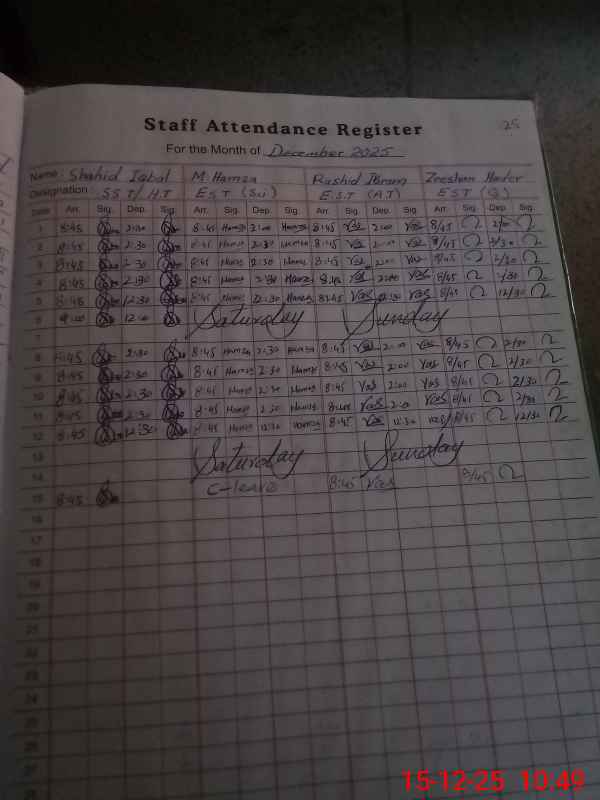 Staff Attendance Register
25
For the Month of December 2025
Name Shahid Iqbal M Hamza Rashid Ikram Zeeshan Haider
Designation SST/H.T EST (Sci) E.S.T (A.T) EST (Q)
Date Arr. Sig. Dep. Sig. Arr. Sig. Dep. Sig. Arr. Sig. Dep. Sig. Arr. Sig. Dep. Sig.
1 8:45 2:30 8:45 Hamza 2:00 Hamza 8:45 2:00 8/45
2 8:45 2:30 8:45 Hamza 2:30 Hamza 8:45 2:00 8/45 2/30
3 8:45 2:30 8:45 Hamza 2:30 Hamza 8:45 2:00 8/45 2/30
4 8:45 2:30 8:45 Hamza 2:30 Hamza 8:45 2:00 8/45 2/30
5 8:45 12:30 8:45 Hamza 12:30 Hamza 8:45 12:30 8/45 12/30
6 9:00 12:00 Saturday Sunday
7
8 8:45 2:30 8:45 Hamza 2:30 Hamza 8:45 2:00 8/45 2/30
9 8:45 2:30 8:45 Hamza 2:30 Hamza 8:45 2:00 8/45 2/30
10 8:45 2:30 8:45 Hamza 2:30 Hamza 8:45 2:00 8/45 2/30
11 8:45 2:30 8:45 Hamza 2:30 Hamza 8:45 2:00 8/45 2/30
12 8:45 12:30 8:45 Hamza 12:30 Hamza 8:45 12:30 8/45 12/30
13 Saturday Sunday
14
15 8:45 C-leave 8:45 8/45
16
17
18
19
20
21
22
23
24
25
26
27
15-12-25 10:49